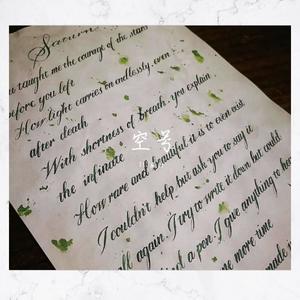 Saturn
taught me the courage of the stars
before you left
How light carries on endlessly, even
after death
With shortness of breath, you explain
the infinite
How rare and beautiful it is to even exist
空号
I couldn't help but ask you to say it
all again. I try to write it down but could
a pen, I give anything to
one more time
made